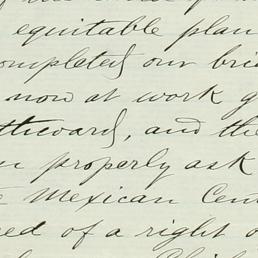 equitable plan
completed our bri
now at work g
thward, and the
properly ask
Mexican Cent
ed of a right o